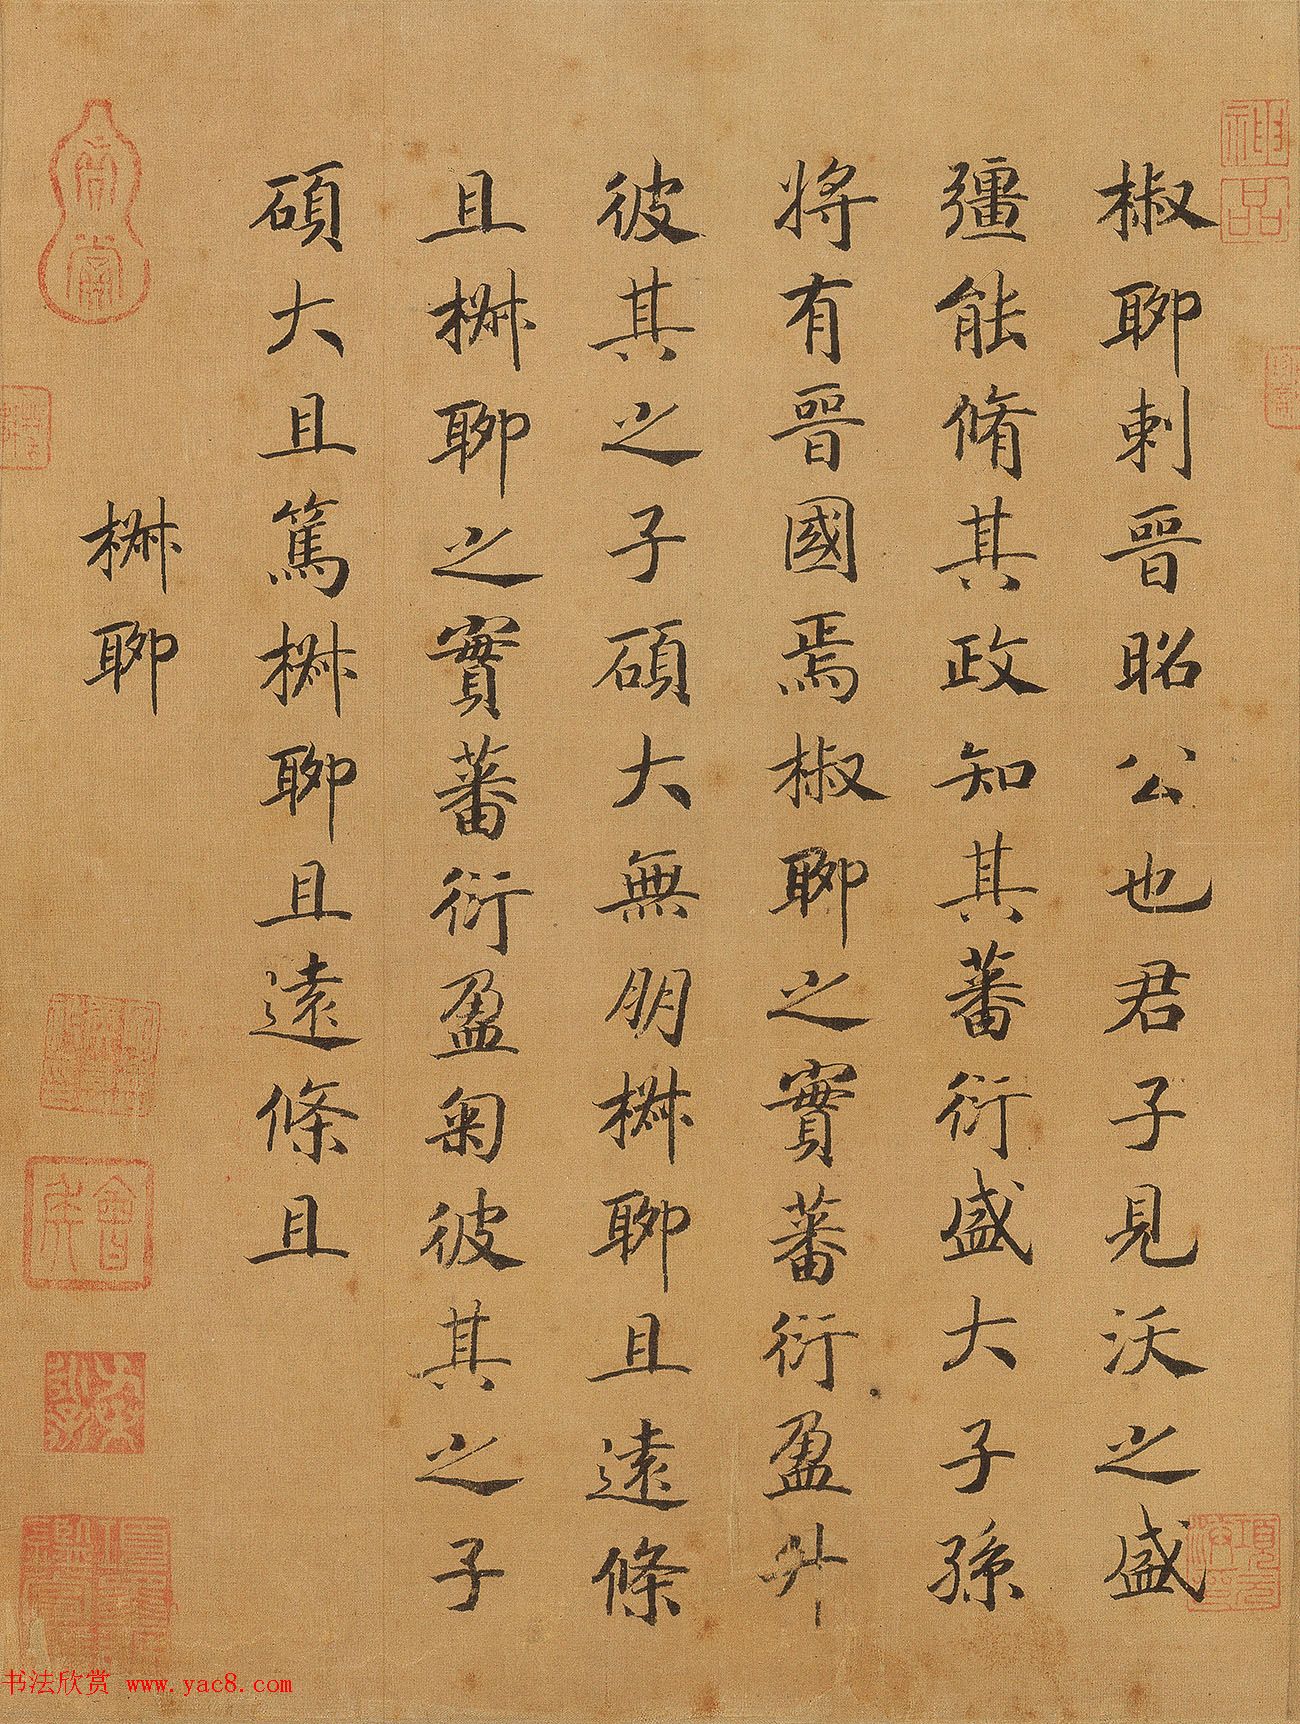 椒聊刺晉昭公也君子見沃之盛
彊能脩其政知其蕃衍盛大子孫
將有晉國焉椒聊之實蕃衍盈升
彼其之子碩大無朋椒聊且遠條
且椒聊之實蕃衍盈匊彼其之子
碩大且篤椒聊且遠條且
椒聊
神品
書法欣賞 www.yac8.com